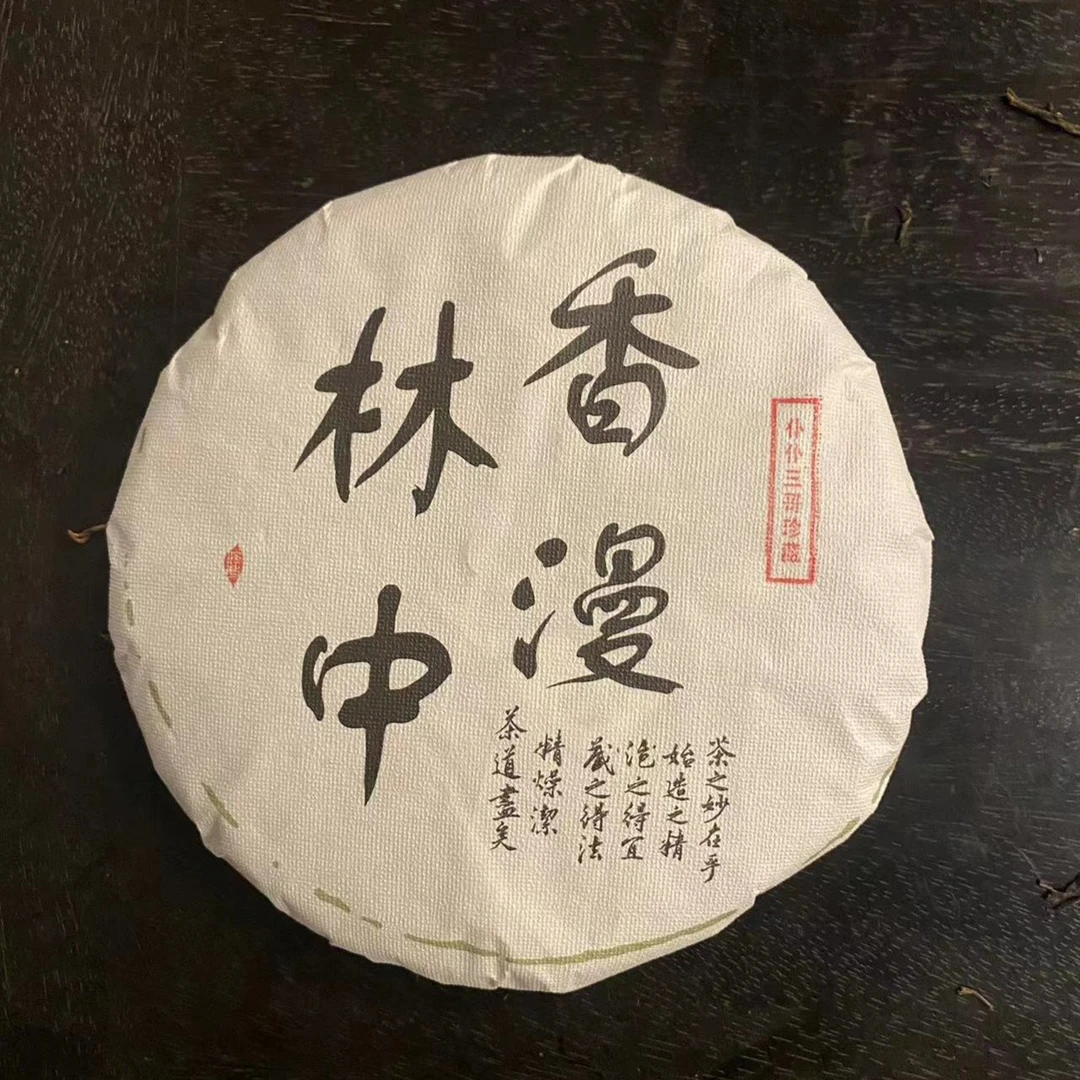 仆仆三哥珍藏
香漫
林中
茶之妙在乎
始造之精
泡之得宜
藏之得法
精燥潔
茶道盡矣